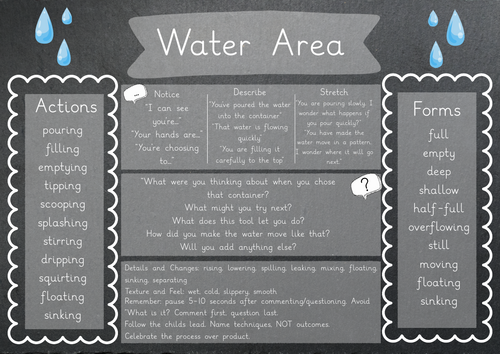 Water Area
Actions
pouring
filling
emptying
tipping
scooping
splashing
stirring
dripping
squirting
floating
sinking
...
Notice
"I can see
you're..."
"Your hands are..."
"You're choosing
to..."
Describe
"You've poured the water
into the container"
"That water is flowing
quickly"
"You are filling it
carefully to the top"
Stretch
"You are pouring slowly, I
wonder what happens if
you pour quickly?"
"You have made the
water move in a pattern,
I wonder where it will go
next"
?
"What were you thinking about when you chose
that container?
What might you try next?
What does this tool let you do?
How did you make the water move like that?
Will you add anything else?
Details and Changes: rising, lowering, spilling, leaking, mixing, floating,
sinking, separating
Texture and Feel: wet, cold, slippery, smooth.
Remember: pause 5-10 seconds after commenting/questioning. Avoid
"What is it? Comment first, question last.
Follow the childs lead. Name techniques, NOT outcomes.
Celebrate the process over product.
Forms
full
empty
deep
shallow
half-full
overflowing
still
moving
floating
sinking